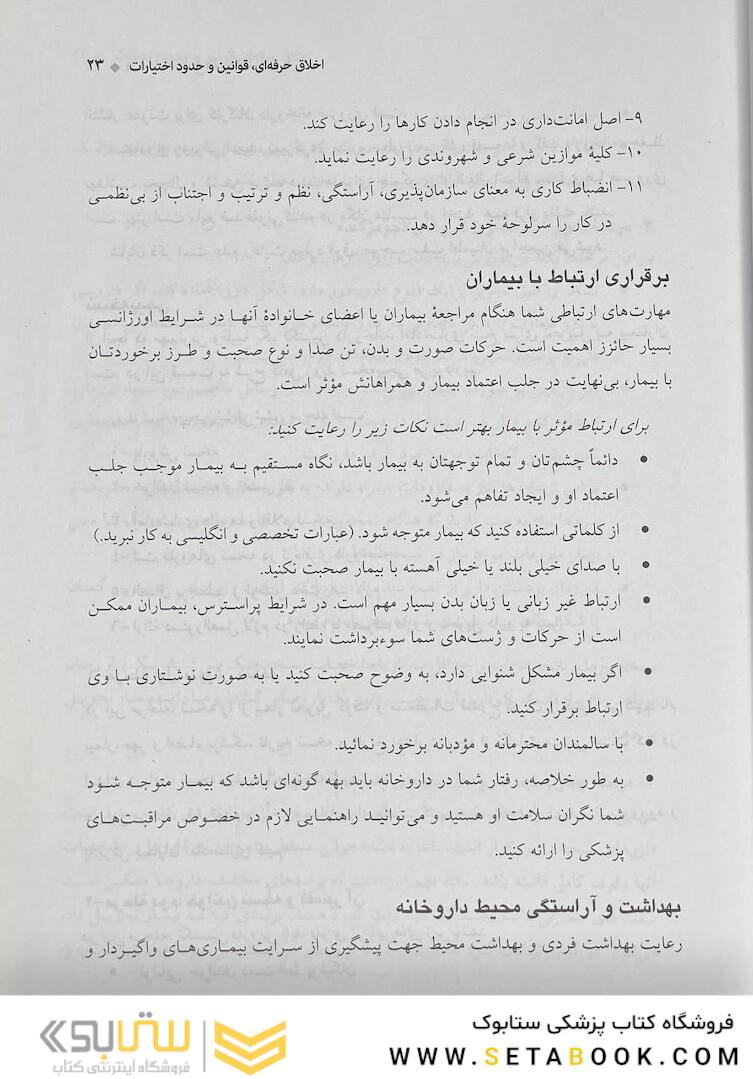 اخلاق حرفه‌ای، قوانین و حدود اختیارات ◆ ۲۳
۹- اصل امانت‌داری در انجام دادن کارها را رعایت کند.
۱۰- کلیهٔ موازین شرعی و شهروندی را رعایت نماید.
۱۱- انضباط کاری به معنای سازمان‌پذیری، آراستگی، نظم و ترتیب و اجتناب از بی‌نظمی
در کار را سرلوحهٔ خود قرار دهد.
برقراری ارتباط با بیماران
مهارت‌های ارتباطی شما هنگام مراجعهٔ بیماران یا اعضای خانوادهٔ آنها در شرایط اورژانسی
بسیار حائزز اهمیت است. حرکات صورت و بدن، تن صدا و نوع صحبت و طرز برخوردتان
با بیمار، بی‌نهایت در جلب اعتماد بیمار و همراهانش مؤثر است.
برای ارتباط مؤثر با بیمار بهتر است نکات زیر را رعایت کنید:
• دائماً چشم‌تان و تمام توجهتان به بیمار باشد، نگاه مستقیم به بیمار موجب جلب
اعتماد او و ایجاد تفاهم می‌شود.
• از کلماتی استفاده کنید که بیمار متوجه شود. (عبارات تخصصی و انگلیسی به کار نبرید.)
• با صدای خیلی بلند یا خیلی آهسته با بیمار صحبت نکنید.
• ارتباط غیر زبانی یا زبان بدن بسیار مهم است. در شرایط پراسترس، بیماران ممکن
است از حرکات و ژست‌های شما سوءبرداشت نمایند.
• اگر بیمار مشکل شنوایی دارد، به وضوح صحبت کنید یا به صورت نوشتاری با وی
ارتباط برقرار کنید.
• با سالمندان محترمانه و مؤدبانه برخورد نمائید.
• به طور خلاصه، رفتار شما در داروخانه باید بهه گونه‌ای باشد که بیمار متوجه شود
شما نگران سلامت او هستید و می‌توانید راهنمایی لازم در خصوص مراقبت‌های
پزشکی را ارائه کنید.
بهداشت و آراستگی محیط داروخانه
رعایت بهداشت فردی و بهداشت محیط جهت پیشگیری از سرایت بیماری‌های واگیردار و
فروشگاه کتاب پزشکی ستابوک
WWW.SETABOOK.COM
ستابوک
فروشگاه اینترنتی کتاب